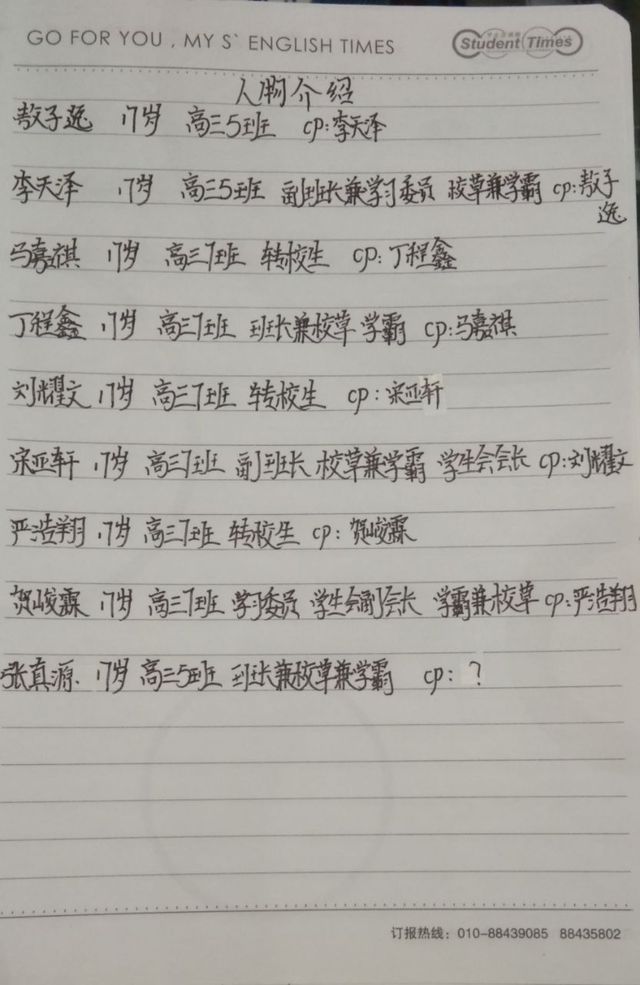 GO FOR YOU , MY S` ENGLISH TIMES
Student Times
人物介绍
敖子逸 17岁 高三5班 cp:李天泽
李天泽 17岁 高三5班 副班长兼学习委员 校草兼学霸 cp:敖子
逸
马嘉祺 17岁 高三7班 转校生 cp:丁程鑫
丁程鑫 17岁 高三7班 班长兼校草 学霸 cp:马嘉祺
刘耀文 17岁 高三7班 转校生 cp:宋亚轩
宋亚轩 17岁 高三7班 副班长 校草兼学霸 学生会会长 cp:刘耀文
严浩翔 17岁 高三7班 转校生 cp:贺峻霖
贺峻霖 17岁 高三7班 学习委员 学生会副会长 学霸兼校草 cp:严浩翔
张真源. 17岁 高三5班 班长兼校草兼学霸 cp:?
订报热线：010-88439085 88435802